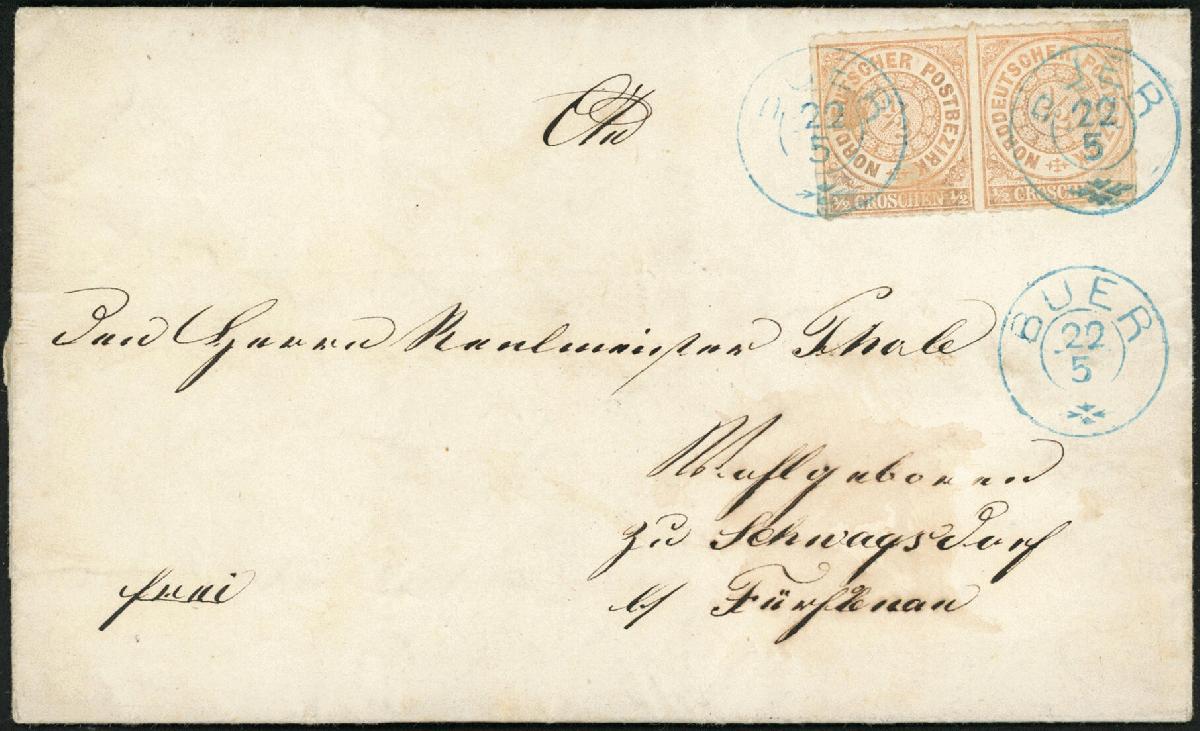 NORDDEUTSCHER POSTBEZIRK
½ GROSCHEN ½
NORDDEUTSCHER POSTBEZIRK
½ GROSCHEN ½
BUER
22
5
BUER
22
5
An
den Herrn Rentmeister Thole
BUER
22
5
Wohlgeboren
zu Schwagsdorf
b/ Fürstenau
frei